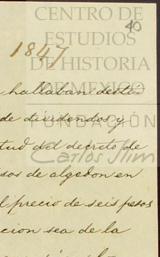 CENTRO DE
ESTUDIOS
DE HISTORIA
DE MEXICO
FUNDACIÓN
Carlos Slim
40
1847
hallaban desti-
de dividendos y
tud del decreto de
sos de algodon en
l precio de seis pesos
cion sea de la